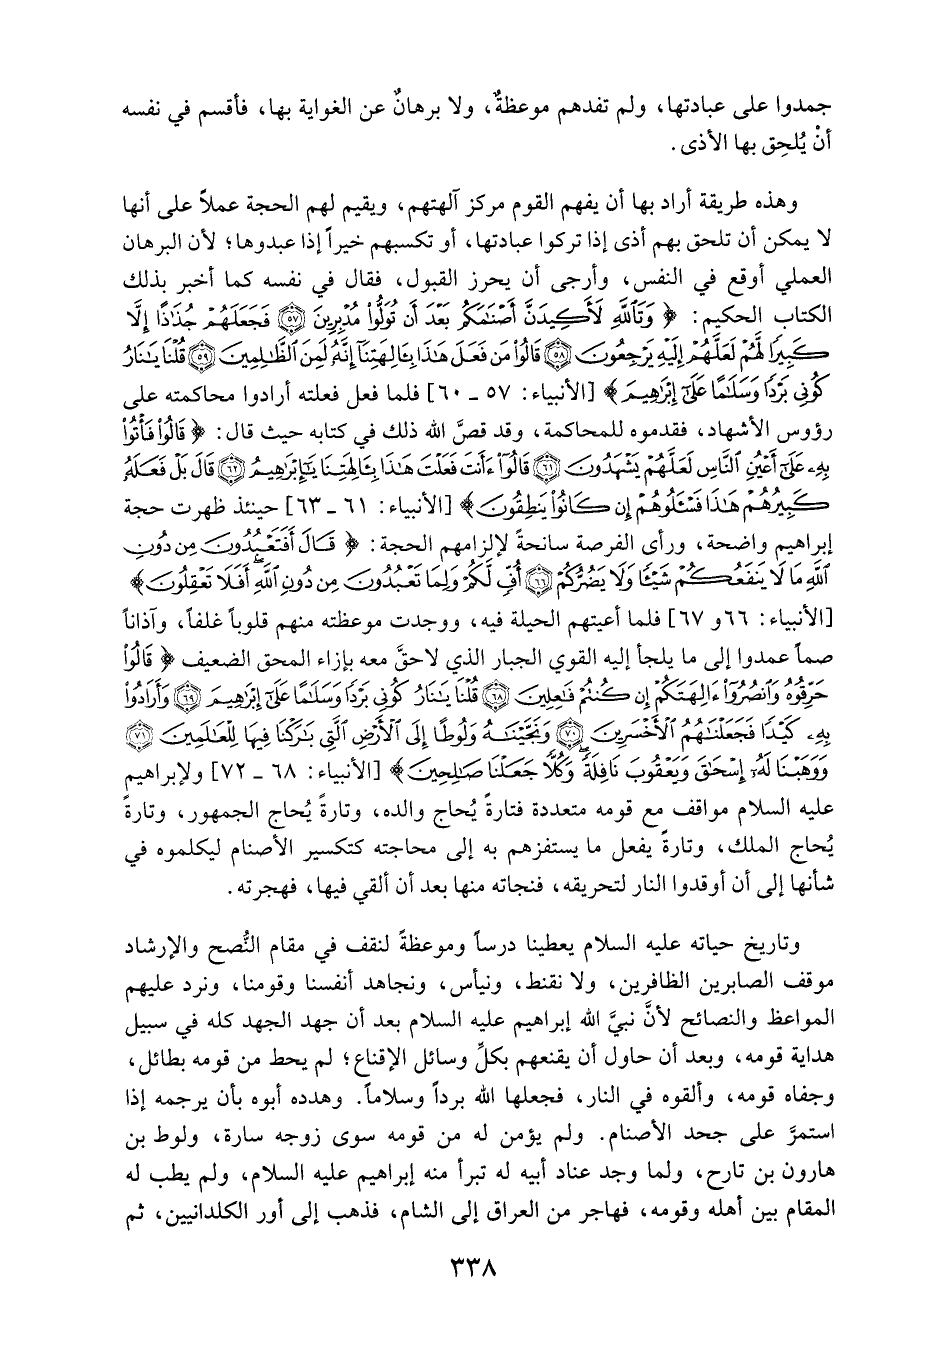 جمدوا على عبادتها، ولم تفدهم موعظةٌ، ولا برهانٌ عن الغواية بها، فأقسم في نفسه
أنْ يُلحِق بها الأذى.
وهذه طريقة أراد بها أن يفهم القوم مركز آلهتهم، ويقيم لهم الحجة عملاً على أنها
لا يمكن أن تلحق بهم أذى إذا تركوا عبادتها، أو تكسبهم خيراً إذا عبدوها؛ لأن البرهان
العملي أوقع في النفس، وأرجى أن يحرز القبول، فقال في نفسه كما أخبر بذلك
الكتاب الحكيم: ﴿ وَتَٱللَّهِ لَأَكِيدَنَّ أَصْنَٰمَكُم بَعْدَ أَن تُوَلُّوا۟ مُدْبِرِينَ ٥٧ فَجَعَلَهُمْ جُذَٰذًا إِلَّا
كَبِيرًا لَّهُمْ لَعَلَّهُمْ إِلَيْهِ يَرْجِعُونَ ٥٨ قَالُوا۟ مَن فَعَلَ هَٰذَا بِـَٔالِهَتِنَآ إِنَّهُۥ لَمِنَ ٱلظَّٰلِمِينَ ٥٩ قُلْنَا يَٰنَارُ
كُونِى بَرْدًا وَسَلَٰمًا عَلَىٰٓ إِبْرَٰهِيمَ ﴾ [الأنبياء: ٥٧ ـ ٦٠] فلما فعل فعلته أرادوا محاكمته على
رؤوس الأشهاد، فقدموه للمحاكمة، وقد قصَّ الله ذلك في كتابه حيث قال: ﴿ قَالُوا۟ فَأْتُوا۟
بِهِۦ عَلَىٰٓ أَعْيُنِ ٱلنَّاسِ لَعَلَّهُمْ يَشْهَدُونَ ٦١ قَالُوٓا۟ ءَأَنتَ فَعَلْتَ هَٰذَا بِـَٔالِهَتِنَا يَٰٓإِبْرَٰهِيمُ ٦٢ قَالَ بَلْ فَعَلَهُۥ
كَبِيرُهُمْ هَٰذَا فَسْـَٔلُوهُمْ إِن كَانُوا۟ يَنطِقُونَ ﴾ [الأنبياء: ٦١ ـ ٦٣] حينئذ ظهرت حجة
إبراهيم واضحة، ورأى الفرصة سانحةً لإلزامهم الحجة: ﴿ قَالَ أَفَتَعْبُدُونَ مِن دُونِ
ٱللَّهِ مَا لَا يَنفَعُكُمْ شَيْـًٔا وَلَا يَضُرُّكُمْ ٦٦ أُفٍّ لَّكُمْ وَلِمَا تَعْبُدُونَ مِن دُونِ ٱللَّهِ أَفَلَا تَعْقِلُونَ ﴾
[الأنبياء: ٦٦ و ٦٧] فلما أعيتهم الحيلة فيه، ووجدت موعظته منهم قلوباً غلفاً، وآذاناً
صماً عمدوا إلى ما يلجأ إليه القوي الجبار الذي لاحقَّ معه بإزاء المحق الضعيف ﴿ قَالُوا۟
حَرِّقُوهُ وَٱنصُرُوٓا۟ ءَالِهَتَكُمْ إِن كُنتُمْ فَٰعِلِينَ ٦٨ قُلْنَا يَٰنَارُ كُونِى بَرْدًا وَسَلَٰمًا عَلَىٰٓ إِبْرَٰهِيمَ ٦٩ وَأَرَادُوا۟
بِهِۦ كَيْدًا فَجَعَلْنَٰهُمُ ٱلْأَخْسَرِينَ ٧٠ وَنَجَّيْنَٰهُ وَلُوطًا إِلَى ٱلْأَرْضِ ٱلَّتِى بَٰرَكْنَا فِيهَا لِلْعَٰلَمِينَ ٧١
وَوَهَبْنَا لَهُۥٓ إِسْحَٰقَ وَيَعْقُوبَ نَافِلَةً وَكُلًّا جَعَلْنَا صَٰلِحِينَ ﴾ [الأنبياء: ٦٨ ـ ٧٢] ولإبراهيم
عليه السلام مواقف مع قومه متعددة فتارةً يُحاج والده، وتارةً يُحاج الجمهور، وتارةً
يُحاج الملك، وتارةً يفعل ما يستفزهم به إلى محاجته كتكسير الأصنام ليكلموه في
شأنها إلى أن أوقدوا النار لتحريقه، فنجاته منها بعد أن ألقي فيها، فهجرته.
وتاريخ حياته عليه السلام يعطينا درساً وموعظةً لنقف في مقام النُّصح والإرشاد
موقف الصابرين الظافرين، ولا نقنط، ونيأس، ونجاهد أنفسنا وقومنا، ونرد عليهم
المواعظ والنصائح لأنَّ نبيَّ الله إبراهيم عليه السلام بعد أن جهد الجهد كله في سبيل
هداية قومه، وبعد أن حاول أن يقنعهم بكلِّ وسائل الإقناع؛ لم يحط من قومه بطائل،
وجفاه قومه، وألقوه في النار، فجعلها الله برداً وسلاماً. وهدده أبوه بأن يرجمه إذا
استمرَّ على جحد الأصنام. ولم يؤمن له من قومه سوى زوجه سارة، ولوط بن
هارون بن تارح، ولما وجد عناد أبيه له تبرأ منه إبراهيم عليه السلام، ولم يطب له
المقام بين أهله وقومه، فهاجر من العراق إلى الشام، فذهب إلى أور الكلدانيين، ثم
٣٣٨